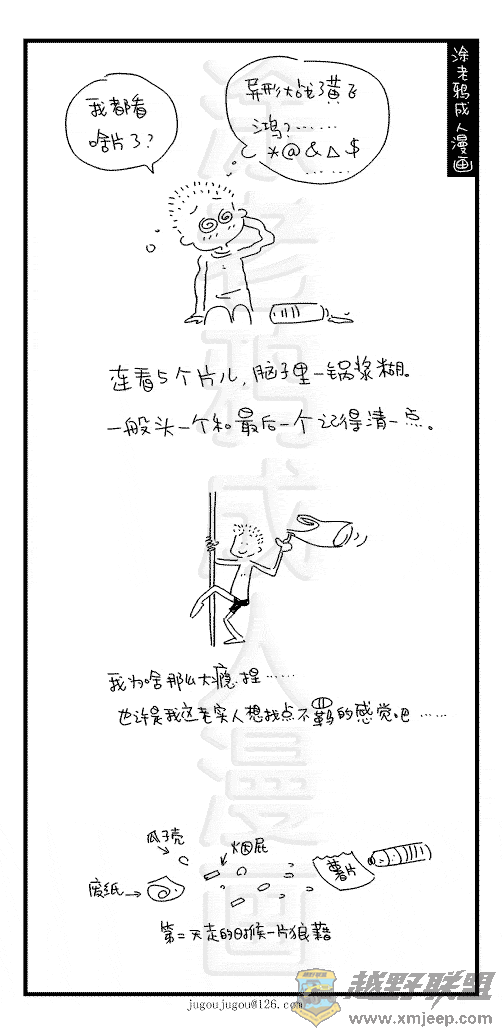 涂老鸦成人漫画
我都看
啥片了?
异形大战了黄飞
鸿?……
*@&△$
……
连看5个片儿,脑子里一锅浆糊。
一般头一个和最后一个记得清一点。
我为啥那么大瘾捏……
也许是我这老实人想找点不羁的感觉吧……
瓜子壳
烟屁
废纸
薯片
第二天走的时候一片狼藉
涂老鸦成人漫画
jugoujugou@126.com
越野联盟
www.xmjeep.com